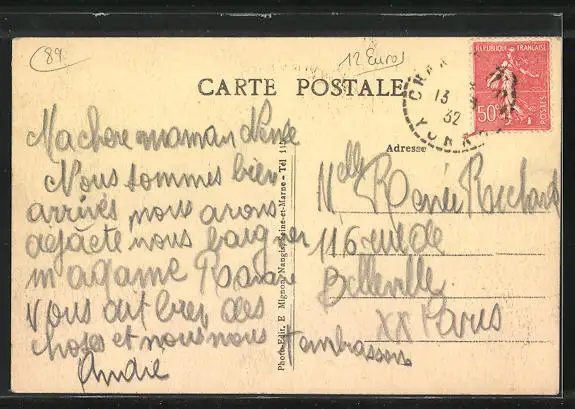 89
12 Euros
CARTE POSTALE
REPUBLIQUE FRANÇAISE
50c
POSTES
13
32
YONNE
Adresse
Ma chere maman Denise
Nous sommes bien
arrivés nous avons
dejàete nous baigner
madame
Vous dit bien des
choses et nous nous t'embrassons
André
Melle Renée Richard
116 rue de
Belleville
XX Paris
Photo-Edit. E Mignon, Nangis, Seine-et-Marne - Tél